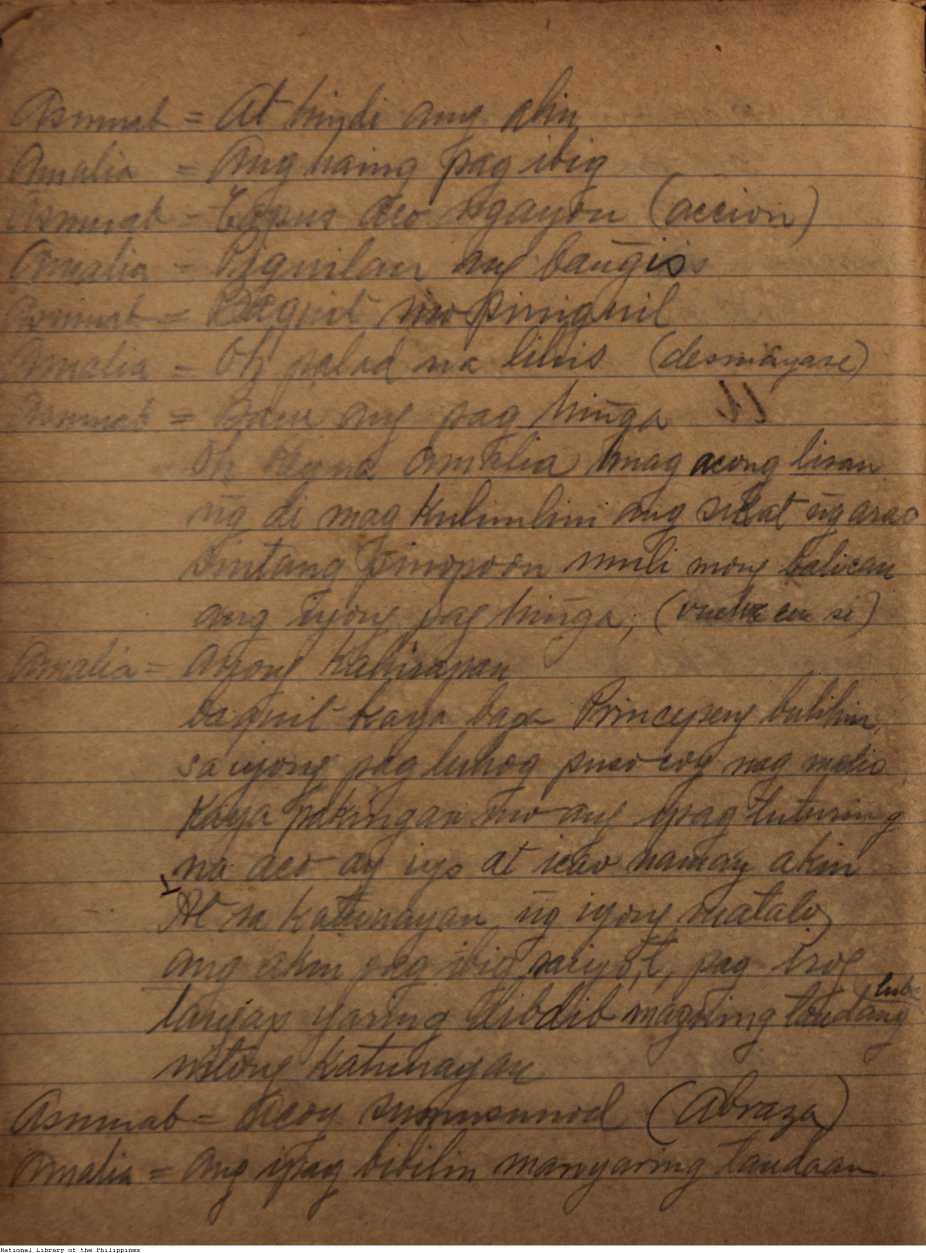 Asmurab = At hindi ang akin
Amalia = Ang haing pag ibig
Asmurab = Tapus aco ngayon (accion)
Amalia = Piguilan ang bangis
Asmurab = Baquit mo piniguil
Amalia = Oh palad na lihis (desmayase)
Asmurab = ang pag hinga
Oh Reyna Amalia huag acong lisan
ng di mag kulimlim ang sicat ng arao
Sintang pinopoon muli mong balican
ang iyong pag hinga, (vuelve en si)
Amalia = Ayong kahirapan
baquit kaya baga Principeng butihin,
sa iyong pag luhog puso coy nag
Kaya pakingan mo ang ipag tuturing
na aco ay iyo at icao namay akin
At sa katunayan ng iyong matalos
ang akin pag ibig saiyo,t, pag irog
lanyap yaring dibdib magiling
nitong katunayan
Asmurab = Acoy sumusunod (Abraza)
Amalia = Ang ipag bibilin manyaring tandaan
National Library of the Philippines